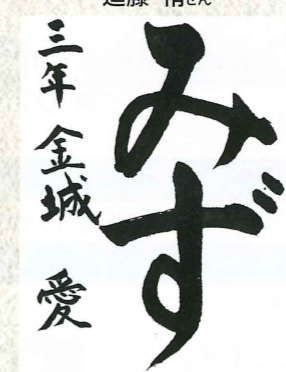 みず
三年 金城 愛